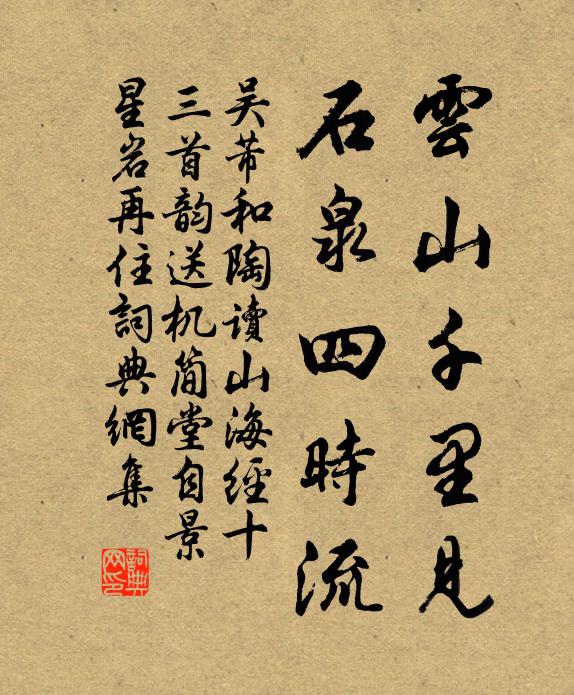 雲山千里見
石泉四時流
吴芾和陶讀山海經十
三首韵送机簡堂自景
星岩再住詞典網集
詞典網印